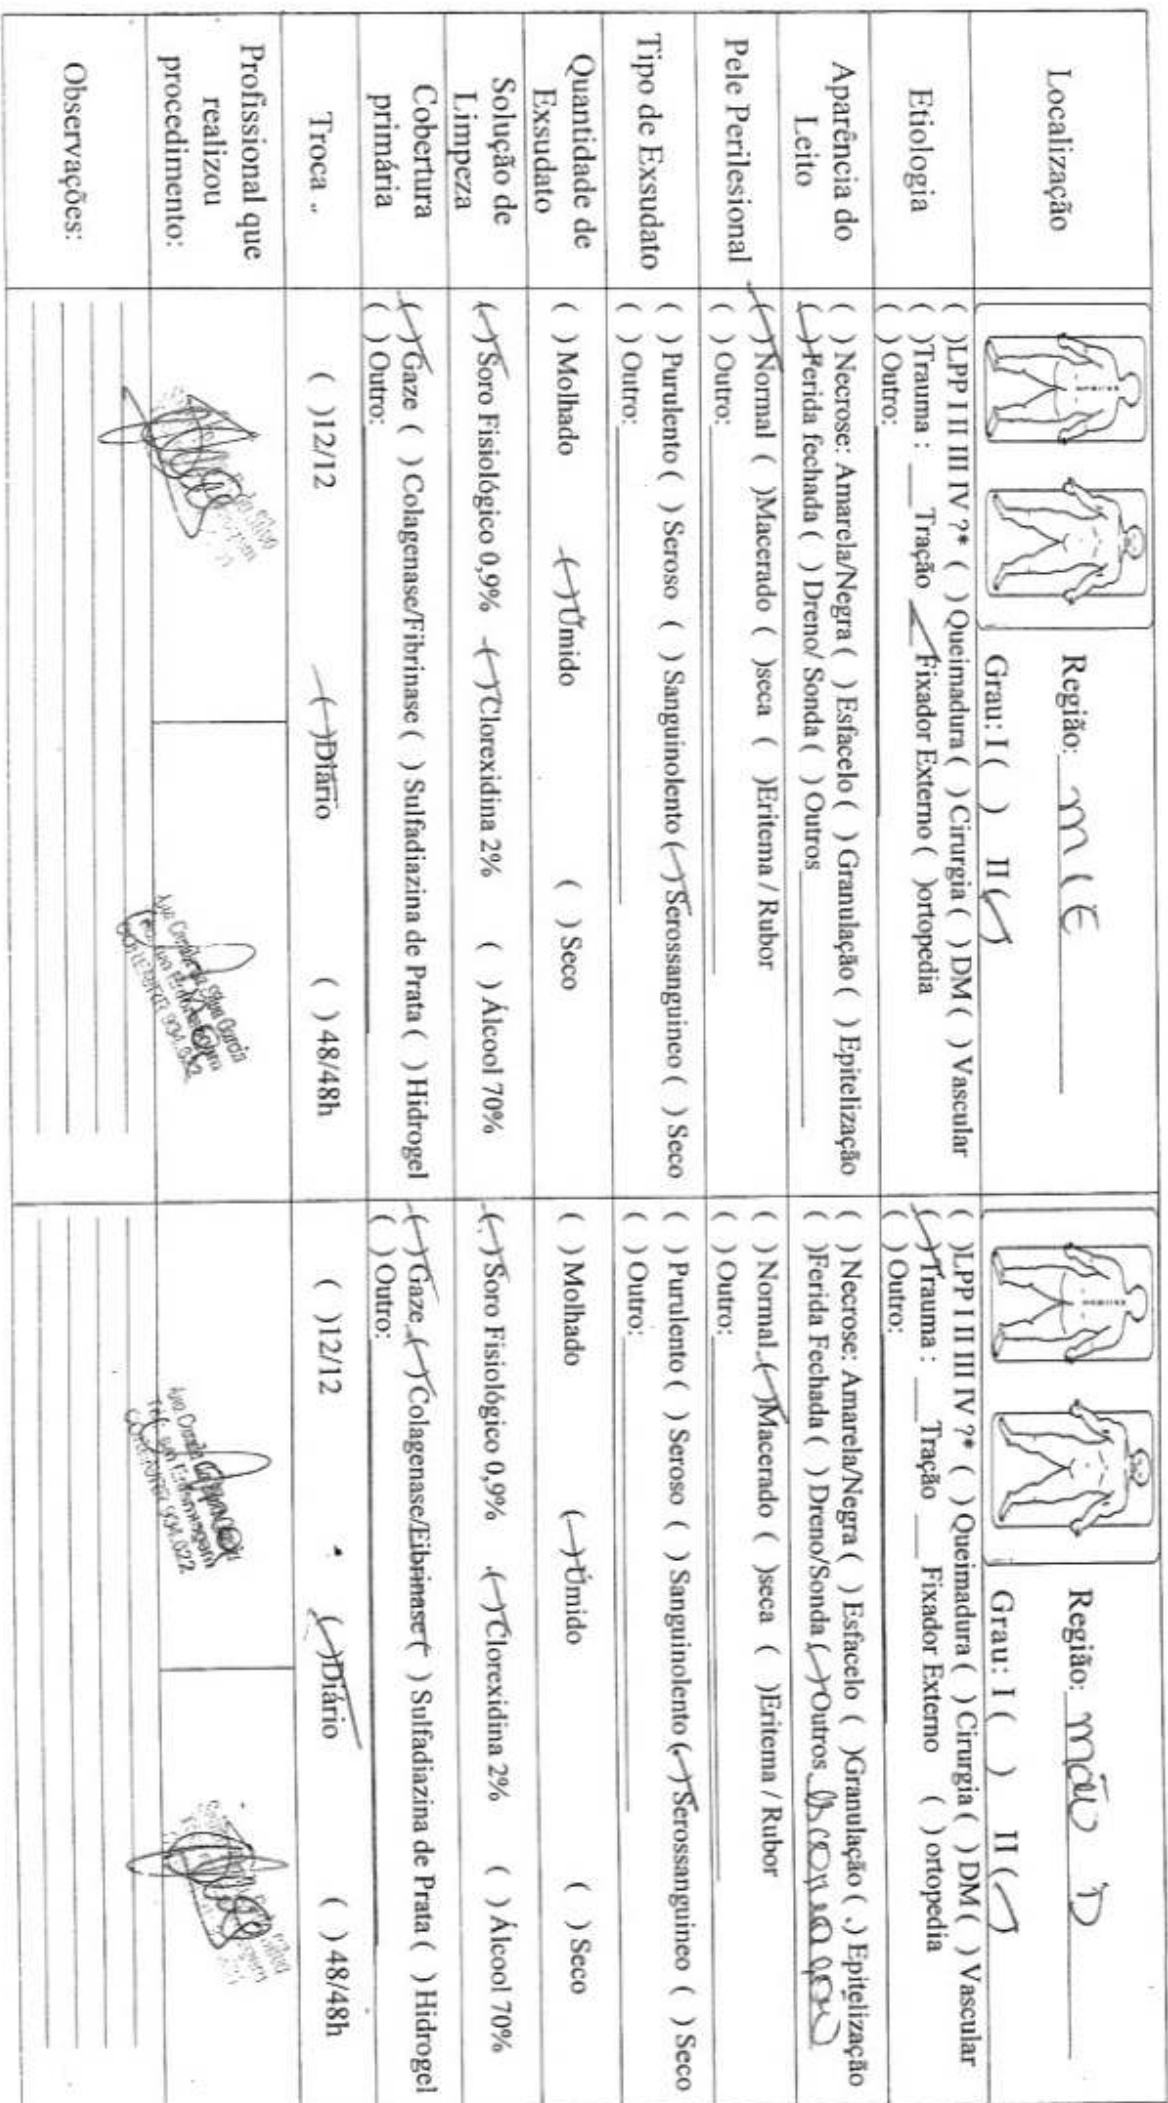 Localização
Região: MIE
Grau: I ( ) II (/)
Região: mão D
Grau: I ( ) II (/)
Etiologia
( )LPP I II III IV ?* ( ) Queimadura ( ) Cirurgia ( ) DM ( ) Vascular
( )Trauma : ___ Tração _/_ Fixador Externo ( )ortopedia
( ) Outro:
( )LPP I II III IV ?* ( ) Queimadura ( ) Cirurgia ( ) DM ( ) Vascular
(/)Trauma : ___ Tração ___ Fixador Externo ( ) ortopedia
( ) Outro:
Aparência do
Leito
( ) Necrose: Amarela/Negra ( ) Esfacelo ( ) Granulação ( ) Epitelização
(/)Ferida fechada ( ) Dreno/ Sonda ( ) Outros
( ) Necrose: Amarela/Negra ( ) Esfacelo ( )Granulação ( ) Epitelização
( )Ferida Fechada ( ) Dreno/Sonda (/)Outros
Pele Perilesional
(/)Normal ( )Macerado ( )seca ( )Eritema / Rubor
( ) Outro:
( ) Normal (/)Macerado ( )seca ( )Eritema / Rubor
( ) Outro:
Tipo de Exsudato
( ) Purulento ( ) Seroso ( ) Sanguinolento (/) Serossanguineo ( ) Seco
( ) Outro:
( ) Purulento ( ) Seroso ( ) Sanguinolento (/)Serossanguineo ( ) Seco
( ) Outro:
Quantidade de
Exsudato
( ) Molhado (/)Úmido ( ) Seco
( ) Molhado (/)Úmido ( ) Seco
Solução de
Limpeza
(/)Soro Fisiológico 0,9% (/)Clorexidina 2% ( ) Álcool 70%
(/)Soro Fisiológico 0,9% (/)Clorexidina 2% ( ) Álcool 70%
Cobertura
primária
(/)Gaze ( ) Colagenase/Fibrinase ( ) Sulfadiazina de Prata ( ) Hidrogel
( ) Outro:
(/)Gaze (/)Colagenase/Fibrinase ( ) Sulfadiazina de Prata ( ) Hidrogel
( ) Outro:
Troca
( )12/12 (/)Diário ( ) 48/48h
( )12/12 (/)Diário ( ) 48/48h
Profissional que
realizou
procedimento:
Observações: